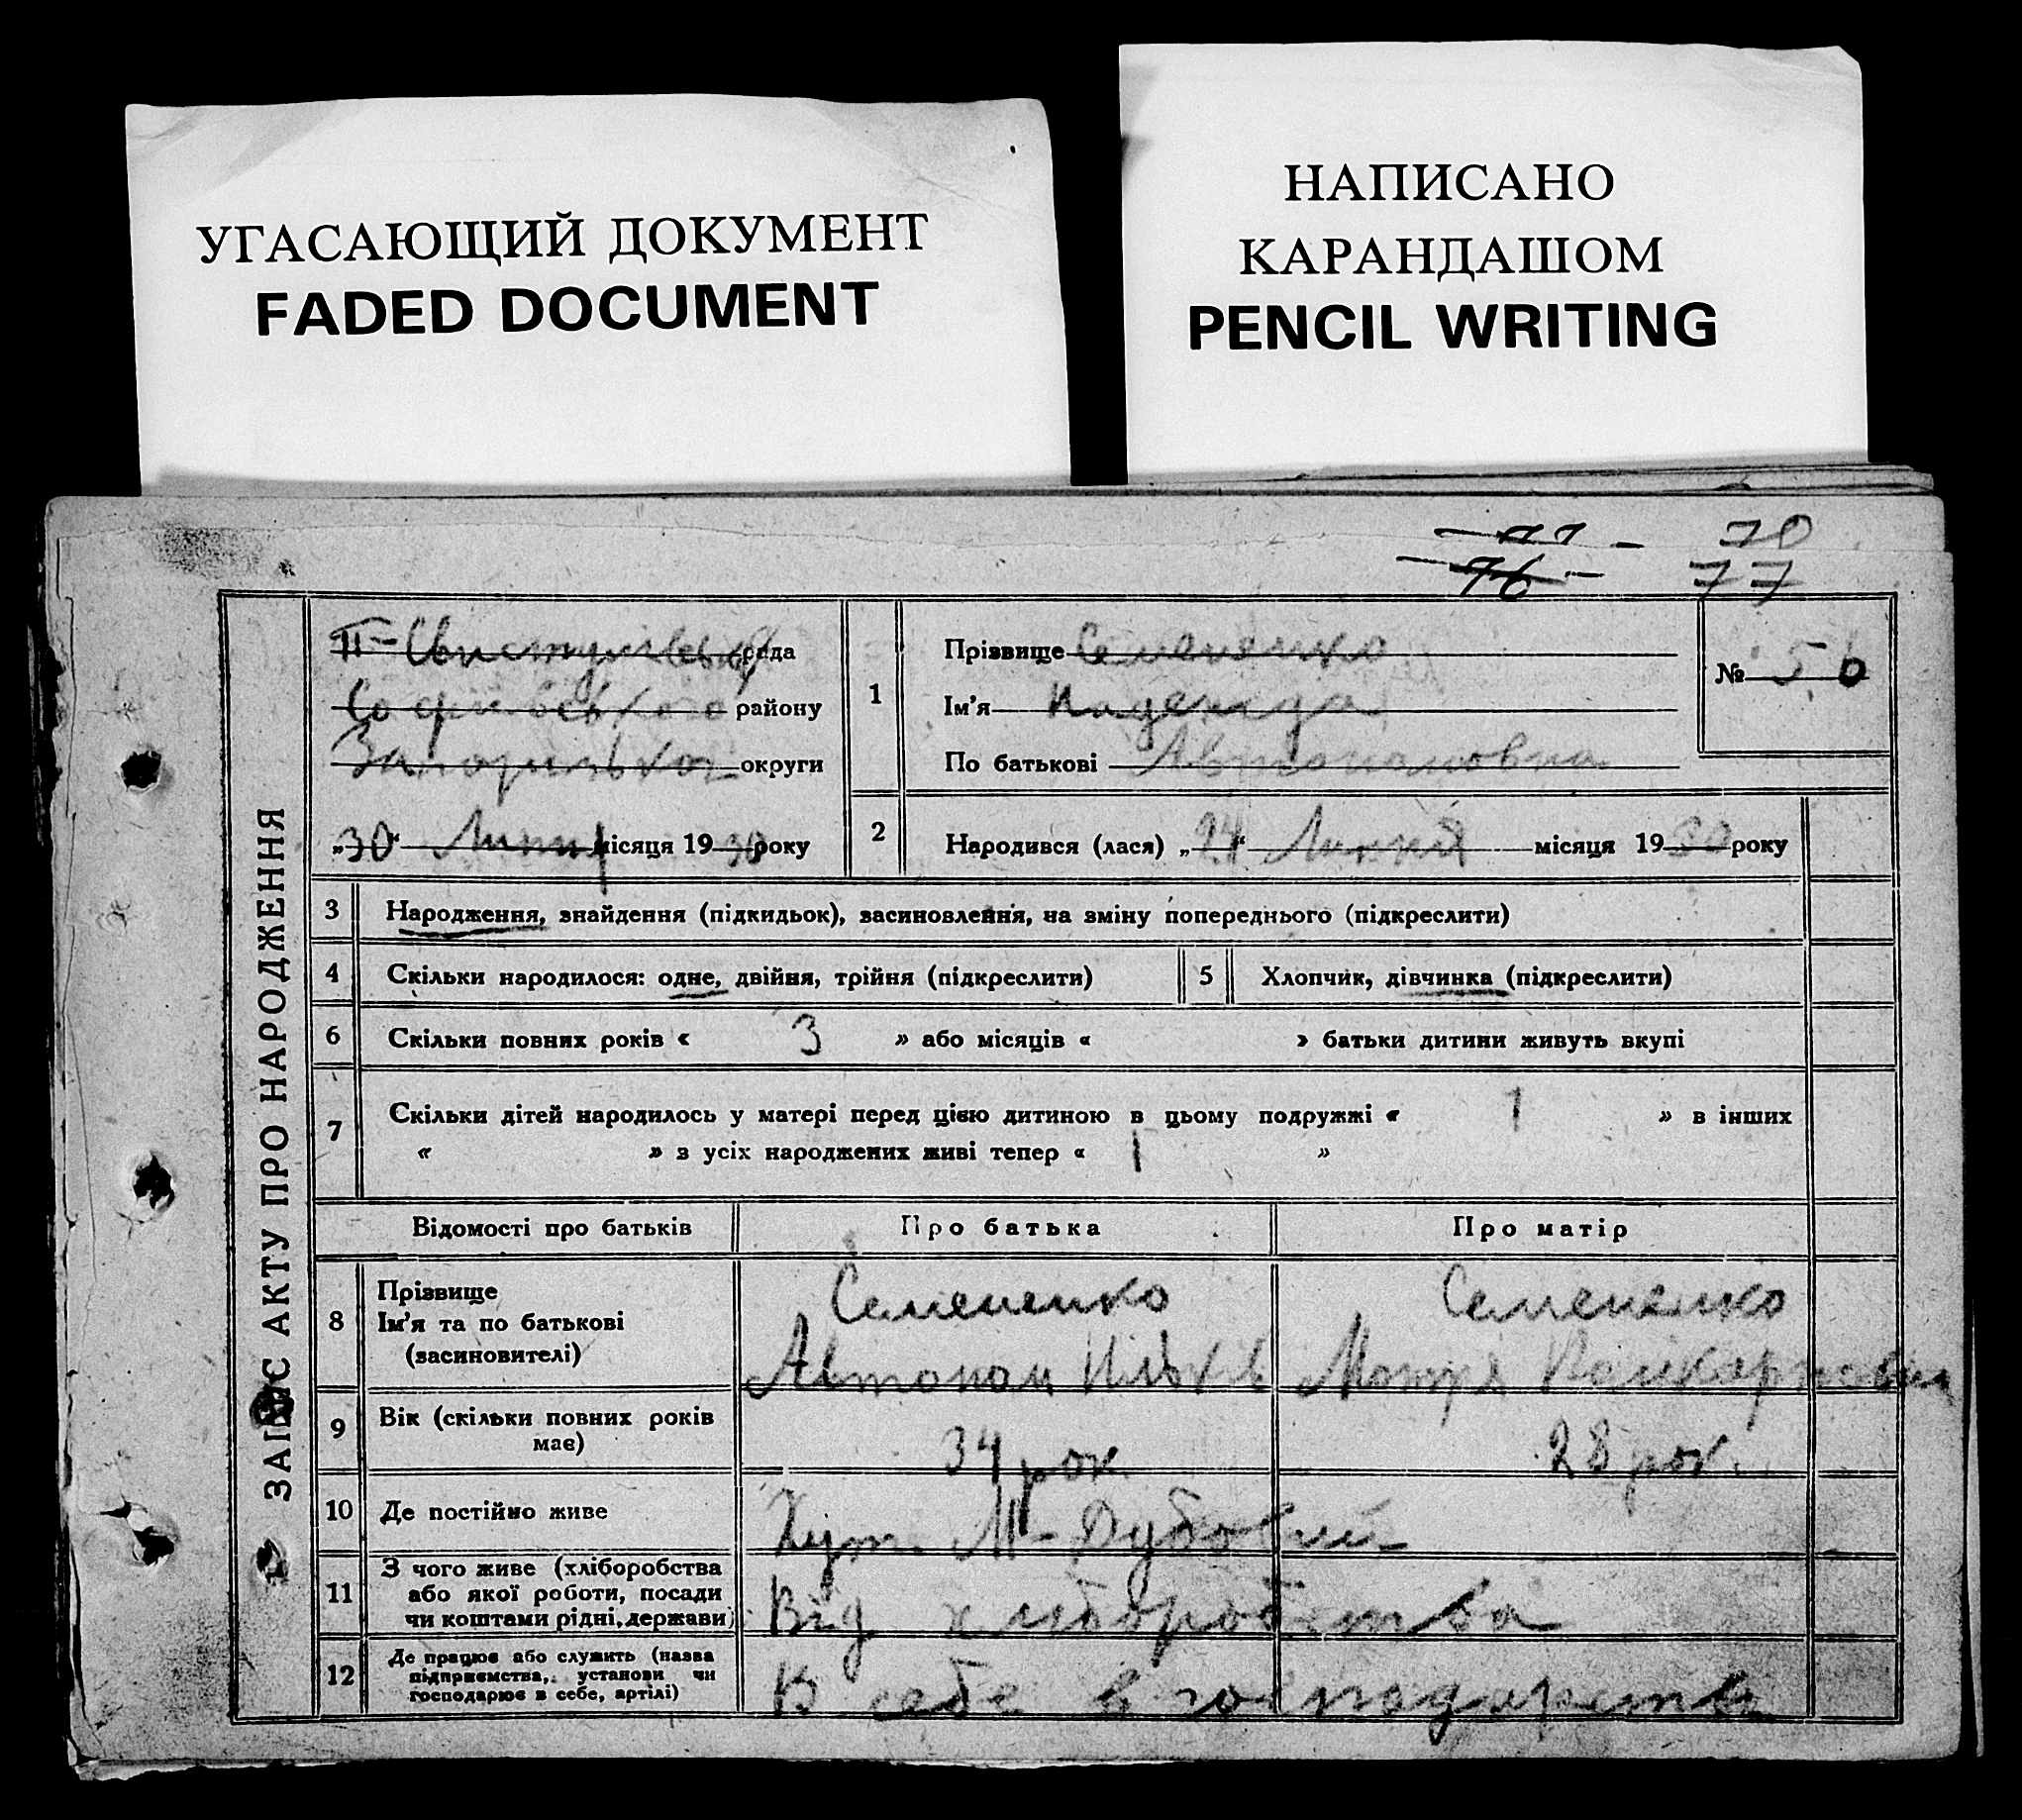 УГАСАЮЩИЙ ДОКУМЕНТ
FADED DOCUMENT
НАПИСАНО
КАРАНДАШОМ
PENCIL WRITING
77 - 70
76 - 77
ЗАПИС АКТУ ПРО НАРОДЖЕННЯ
рада
Софіївського району
Запорізької округи
„30“ Липня місяця 1930 року
1
Прізвище Семененко
Ім'я Надежда
По батькові Автономовна
№ 56
2 Народився (лася) „24“ Липня місяця 1930 року
3 Народження, знайдення (підкидьок), засиновлення, на зміну попереднього (підкреслити)
4 Скільки народилося: одне, двійня, трійня (підкреслити) 5 Хлопчик, дівчинка (підкреслити)
6 Скільки повних років « 3 » або місяців « » батьки дитини живуть вкупі
7 Скільки дітей народилось у матері перед цією дитиною в цьому подружжі « 1 » в інших
« » з усіх народжених живі тепер « 1 »
Відомості про батьків Про батька Про матір
8 Прізвище Ім'я та по батькові (засиновителі)
Семененко Семененко
Автоном Ільків Мотря
9 Вік (скільки повних років має) 34 рок. 28 рок.
10 Де постійно живе Хут. М-Дубовий
11 З чого живе (хліборобства або якої роботи, посади чи коштами рідні, держави) Від хліборобства
12 Де працює або служить (назва підприємства, установи чи господарює в себе, артілі) В себе в господарстві